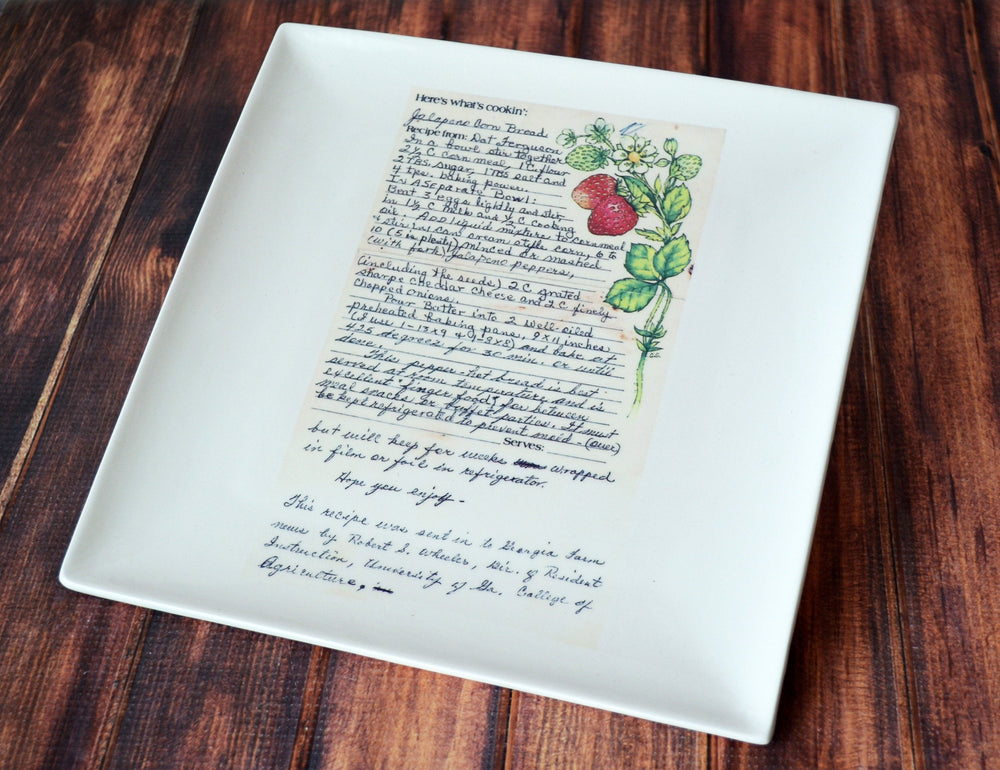 Here's what's cookin':
Jalapeno Corn Bread
Recipe from: Dot Ferguson
In a bowl stir together
2½ C Corn meal, 1 C. flour
2 Tbs. sugar, 1 Tbs salt and
4 tps. baking power.
In A Separate Bowl:
Beat 3 eggs lightly and stir
in 1½ C milk and ½ C cooking
oil. Add liquid mixture to cornmeal
& stir in 1 can cream style corn, 6 to
10 (5 is plenty) minced or mashed
(with fork) Jalapeno peppers,
(including the seeds) 2 C. grated
sharpe cheddar cheese and 2 C. finely
chopped onions.
Pour Batter into 2 well-oiled
preheated baking pans, 9 x 11 inches
(I use 1-13x9 & 1-8x8) and bake at
425 degrees for 30 min. or until
done.
This pepper-hot bread is best
served at room temperature and is
excellent "finger food" for between
meal snacks or buffet parties. It must
be kept refrigerated to prevent mold - (over)
Serves:
but will keep for weeks wrapped
in film or foil in refrigerator.
Hope you enjoy-
This recipe was sent in to Georgia Farm
news by Robert S. Wheeler, Dir. of Resident
Instruction, University of Ga. College of
Agriculture,